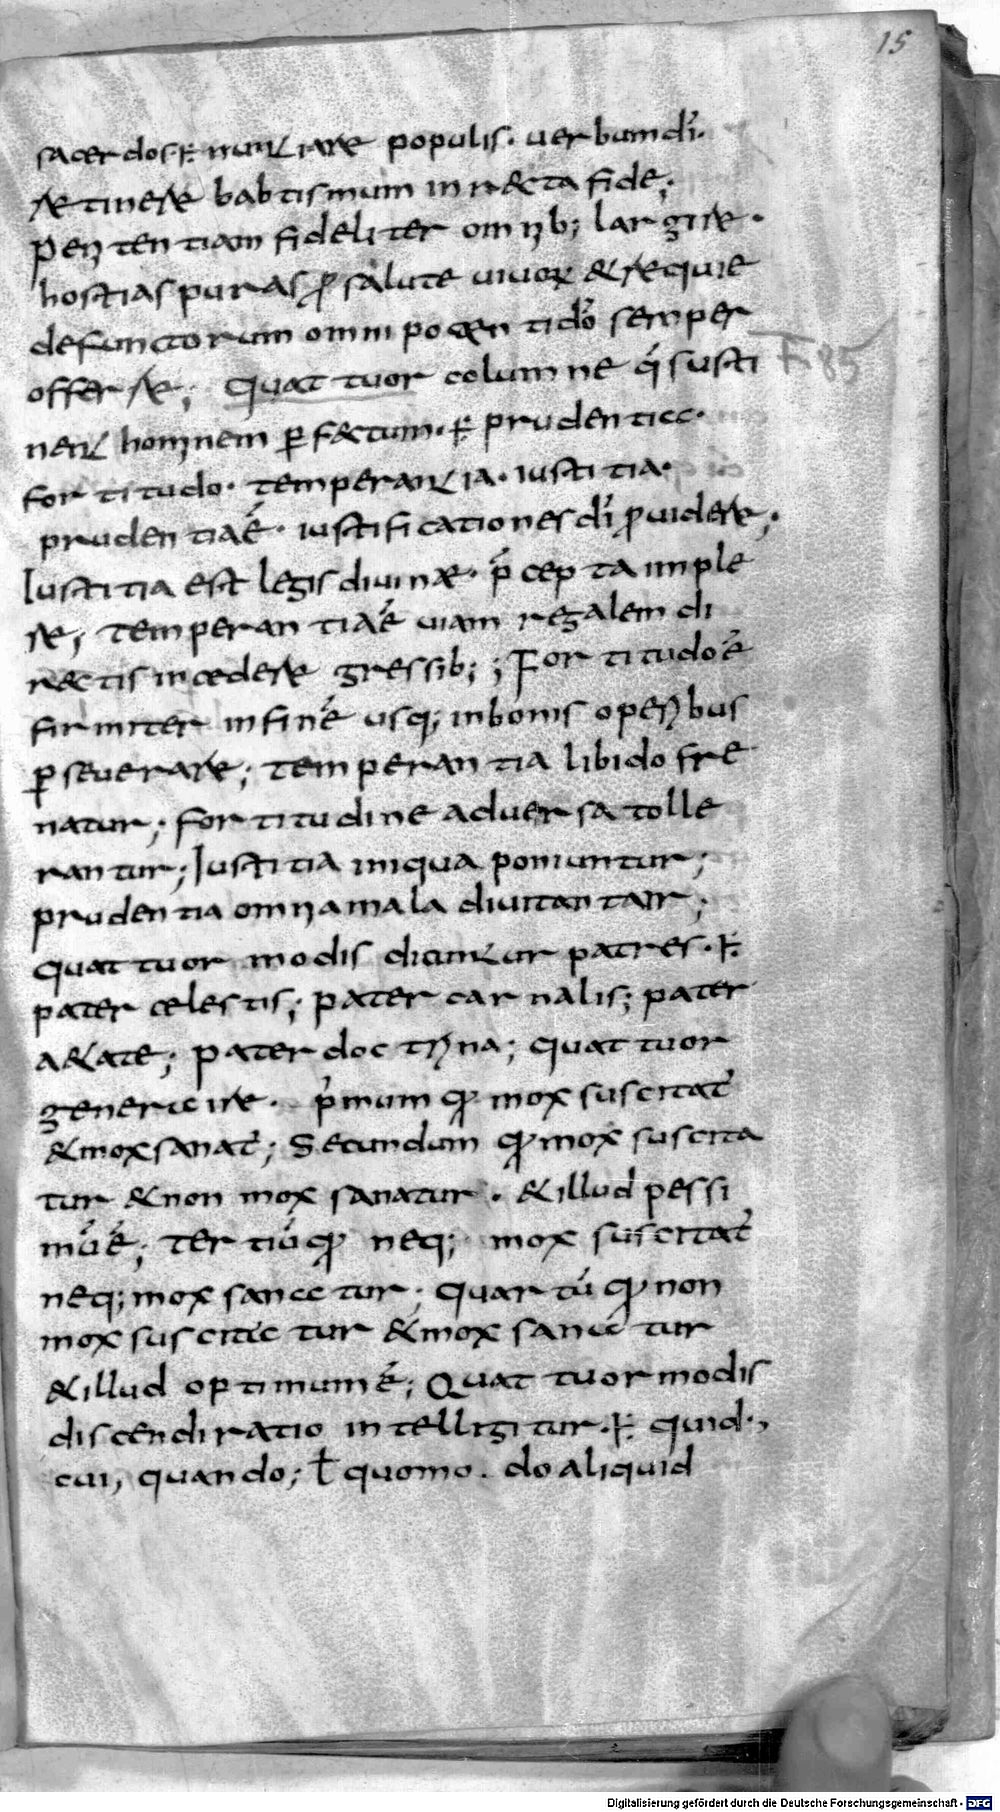 15
sacerdos · nuntiare populis · uerbum di̅ ·
retinere babtismum in recta fide ;
penitentiam fideliter omnib; largire ·
hostias puras ꝓ salute uiuoꝝ & requie
defunctorum omnipotenti do̅ semper
offerre ; quattuor columne q̅ susti
nent hominem ꝑfectum · prudentia ·
fortitudo · temperantia · iustitia ·
prudentia e̅ · iustificationes di̅ ꝓuidere ;
Iustitia est legis diuinæ · p̅cepta imple
re ; temperantia e̅ uiam regalem di
rectis incedere gressib; ; Fortitudo e̅
firmiter in fine̅ usq; in bonis operibus
ꝑseuerare ; temperantia libido fre
natur ; fortitudine aduersa tolle
rantur ; Iustitia iniqua poniuntur ;
prudentia omnia mala diuitantur ;
quattuor modis dicuntur patres ·
pater celestis ; pater carnalis ; pater
a&ate ; pater doctrina ; quattuor
genera ire · p̅mum qđ mox suscitat̅
& mox sanat̅ ; Secundum qđ mox suscita
tur & non mox sanatur · & illud pessi
mu̅ e̅ ; tertiu̅ qđ neq; mox suscitat̅
neq; mox sanatur ; quartu̅ qđ non
mox suscitatur & mox sanatur
& illud optimum e̅ ; Quattuor modis
discendi ratio intelligitur · quid ·,
cui, quando ; ł quomo · do aliquid
F. 85
Digitalisierung gefördert durch die Deutsche Forschungsgemeinschaft - DFG